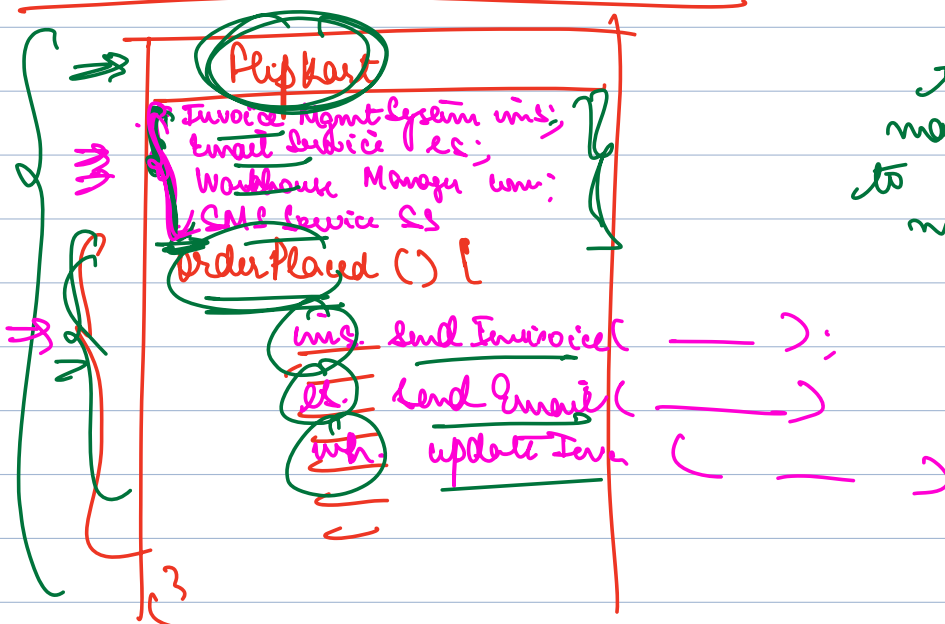 Flipkart
Invoice Mgmt System ims;
Email Service es;
Warehouse Manager wm;
SMS Service SS
OrderPlaced () {
ims. Send Invoice( );
es. Send Email ( )
wh. update Inv ( )
}
to